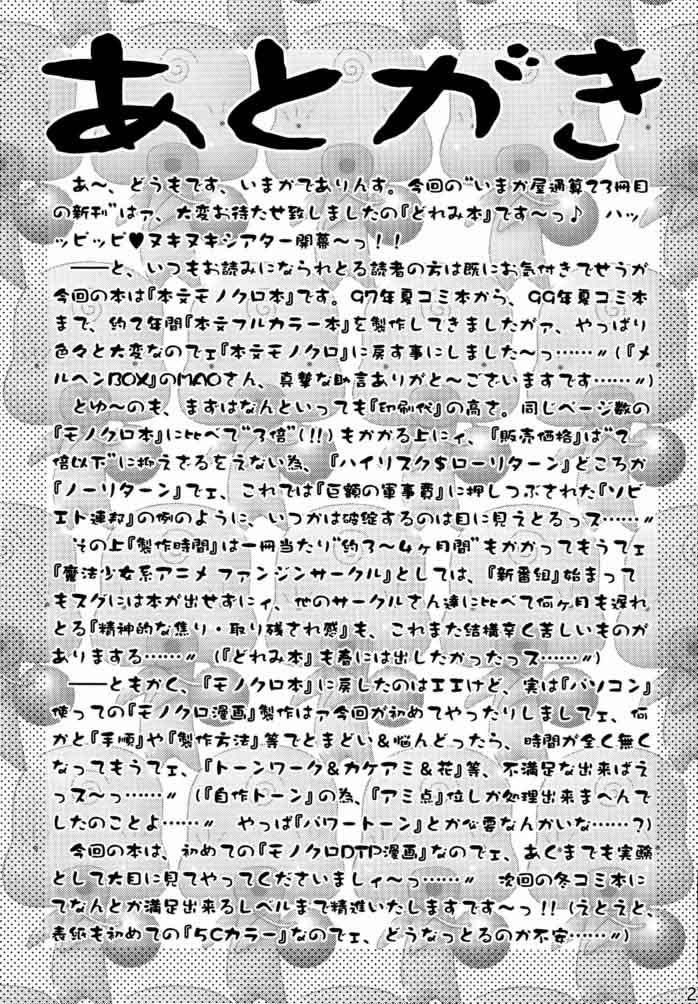 あとがき
あ〜、どうもです、いまかでありんす。今回の"いまか屋通算23冊目
の新刊"はァ、大変お待たせ致しましたの『どれみ本』です〜っ♪ ハッ
ッピッピ♥ヌキヌキシアター開幕〜っ！！
――と、いつもお読みになられとる読者の方は既にお気付きでせうが
今回の本は『本文モノクロ本』です。97年夏コミ本から、99年夏コミ本
まで、約2年間『本文フルカラー本』を製作してきましたがァ、やっぱり
色々と大変なのでェ『本文モノクロ』に戻す事にしました〜っ……〃（『メ
ルヘンBOX』のMAOさん、真摯な助言ありがと〜ございますです……〃）
とゆ〜のも、まずはなんといっても『印刷代』の高さ。同じページ数の
『モノクロ本』に比べて"3倍"（!!）もかかる上にィ、『販売価格』は"2
倍以下"に抑えざるをえない為、『ハイリスク$ローリターン』どころか
『ノーリターン』でェ、これでは『巨額の軍事費』に押しつぶされた『ソビ
エト連邦』の例のように、いつかは破綻するのは目に見えとるっス……〃
その上『製作時間』は一冊当たり"約3〜4ヶ月間"もかかってもうてェ
『魔法少女系アニメ ファンジンサークル』としては、『新番組』始まって
もスグには本が出せずにィ、他のサークルさん達に比べて何ヶ月も遅れ
とる『精神的な焦り・取り残され感』も、これまた結構辛く苦しいものが
ありまする……〃 （『どれみ本』も春には出したかったっス……〃）
――ともかく、『モノクロ本』に戻したのはエエけど、実は『パソコン』
使っての『モノクロ漫画』製作はァ今回が初めてやったりしましてェ、何
かと『手順』や『製作方法』等でとまどい＆悩んどったら、時間が全く無く
なってもうてェ、『トーンワーク＆カケアミ＆花』等、不満足な出来ばえ
っズ〜っ……〃 （『自作トーン』の為、『アミ点』位しか処理出来まへんで
したのことよ……〃 やっぱ『パワートーン』とか必要なんかいな……？）
今回の本は、初めての『モノクロDTP漫画』なのでェ、あくまでも実験
として大目に見てやってくださいましィ〜っ……〃 次回の冬コミ本に
てなんとか満足出来るレベルまで精進いたしますです〜っ！！（えとえと、
表紙も初めての『5Cカラー』なのでェ、どうなっとるのか不安……〃）
2